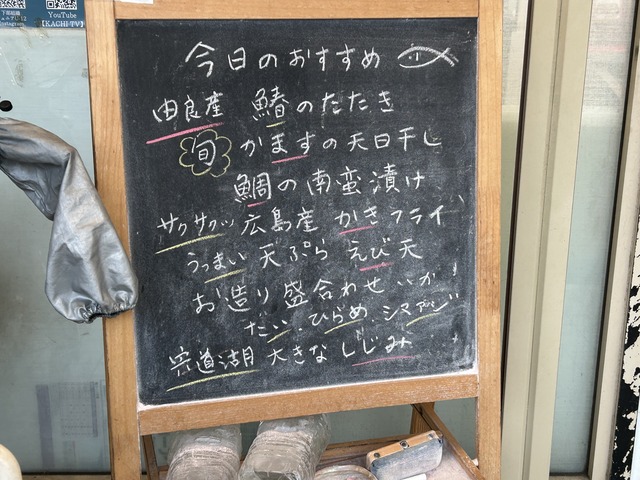 YouTube
【KACHI-TV】
今日のおすすめ
由良産 鰆のたたき
旬 かますの天日干し
鯛の南蛮漬け
サクサクッ 広島産 かきフライ
うっまい 天ぷら えび天
お造り盛合わせ いか
だい.ひらめ.シマアジ
宍道湖 大きなしじみ